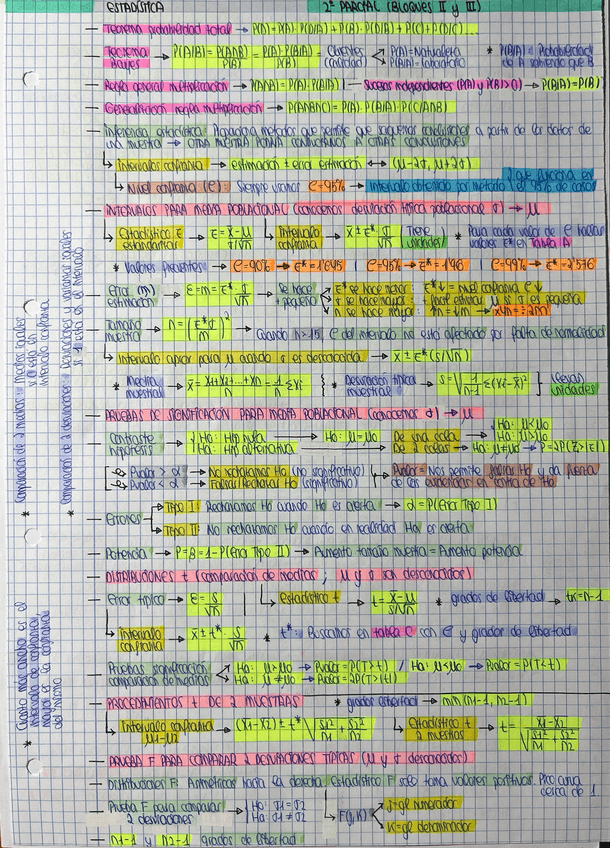 ESTADÍSTICA 2º PARCIAL (BLOQUES II y III)
— Teorema probabilidad total → P(D) = P(A)·P(D/A) + P(B)·P(D/B) + P(C)·P(D/C)...
— Teorema Bayes → P(A|B) = P(A∩B)/P(B) = P(A)·P(B|A)/P(B) = Clientes (calidad) P(A) = Naturaleza P(B|A) = Laboratorio * P(B|A) = Probabilidad de A sabiendo que B
— Regla general multiplicación → P(A∩B) = P(A)·P(B|A) | — Sucesos independientes (P(A) y P(B) > 0) → P(B|A) = P(B)
— Generalización regla multiplicación → P(A∩B∩C) = P(A)·P(B|A)·P(C|A∩B)
— Inferencia estadística: Proporciona métodos que permite que saquemos conclusiones a partir de los datos de
una muestra → OTRA MUESTRA PODRÍA CONDUCIRNOS A OTRAS CONCLUSIONES
↳ Intervalos confianza → estimación ± error estimación ↔ (μ-2σ, μ+2σ)
↳ Nivel confianza (C): Siempre usamos C = 95% → Intervalo obtenido por método que funciona en el 95% de casos
— INTERVALOS PARA MEDIA POBLACIONAL (conocemos desviación típica poblacional σ) → μ
↳ Estadístico z estandarizado → z = x̄-μ / σ/√n ↳ Intervalo confianza → x̄ ± z* σ/√n (Tiene unidades) * Para cada valor de C hallas valores z* en Tabla A
* Valores frecuentes → C = 90% → z* = 1'645 | C = 95% → z* = 1'96 | C = 99% → z* = 2'576
— Error (m) estimación → E = m = z* σ/√n → Se hace + pequeño z* se hace menor: z*↓ = nivel confianza C↓
σ se hace menor: + fácil estimar μ si σ es pequeña
n se hace mayor:
— Tamaño muestral → n = (z*σ/m)² → Cuando n > 15, C del intervalo no está afectado por falta de normalidad
↳ Intervalo aprox para μ cuando σ es desconocida → x̄ ± z*(s/√n)
* Media muestral → x̄ = x1+x2+...+xn / n = 1/n Σxi * Desviación típica muestral → s = √1/n-1 Σ(xi-x̄)² (llevas) unidades
— PRUEBAS DE SIGNIFICACIÓN PARA MEDIA POBLACIONAL (conocemos σ) → μ
— Contraste hipótesis → Ho: Hip nula → Ho: μ = μo
Ha: Hip alternativa → De una cola → Ha: μ < μo Ha: μ > μo
De 2 colas → Ha: μ ≠ μo → P = 2P(Z > |z|)
↳ Pvalor > α → No rechazamos Ho (no significativo)
↳ Pvalor < α → Falsar/Rechazar Ho (significativo)
Pvalor = Nos permite falsar Ho y da fuerza de las evidencias en contra de Ho
— Errores → Tipo I: Rechazamos Ho cuando Ho es cierta → α = P(error Tipo I)
→ Tipo II: No rechazamos Ho cuando en realidad Ha es cierta
— Potencia → P = β = 1 - P(Error Tipo II) → Aumento tamaño muestra = Aumento potencia
— DISTRIBUCIONES t (comparación de medias; μ y σ son desconocidas)
— Error típico → E = s/√n ↳ Estadístico t → t = x̄-μ / s/√n * grados de libertad → tk = n-1
↳ Intervalo confianza → x̄ ± t* · s/√n * t*: Buscamos en tabla C con C y grados de libertad
— Pruebas significación comparación de medias Ha: μ > μo → Pvalor = P(T > t) / Ha: μ < μo → Pvalor = P(T < t)
Ha: μ ≠ μo → Pvalor = 2P(T > t)
— PROCEDIMIENTOS t DE 2 MUESTRAS * grados libertad → min(n1-1, n2-1)
↳ Intervalo confianza μ1-μ2 → (x̄1-x̄2) ± t* √s1²/n1 + s2²/n2 ↳ Estadístico t 2 muestras → t = x̄1-x̄2 / √s1²/n1 + s2²/n2
— PRUEBA F PARA COMPARAR 2 DESVIACIONES TÍPICAS (μ y σ desconocidos)
— Distribuciones F: Asimétricas hacia la derecha. Estadístico F solo toma valores positivos. Pico curva cerca de 1
— Prueba F para comparar 2 desviaciones → Ho: σ1 = σ2 Ha: σ1 ≠ σ2 ↳ F(J,K) J = gl numerador K = gl denominador
— n1-1 y n2-1 grados de libertad
* Comparación de 2 medias = Medias iguales si 0 está en intervalo confianza
* Comparación de 2 desviaciones = Desviaciones y varianzas iguales si 1 está en el intervalo
* Cuanto más ancho es el intervalo de confianza, mayor es la confianza del mismo